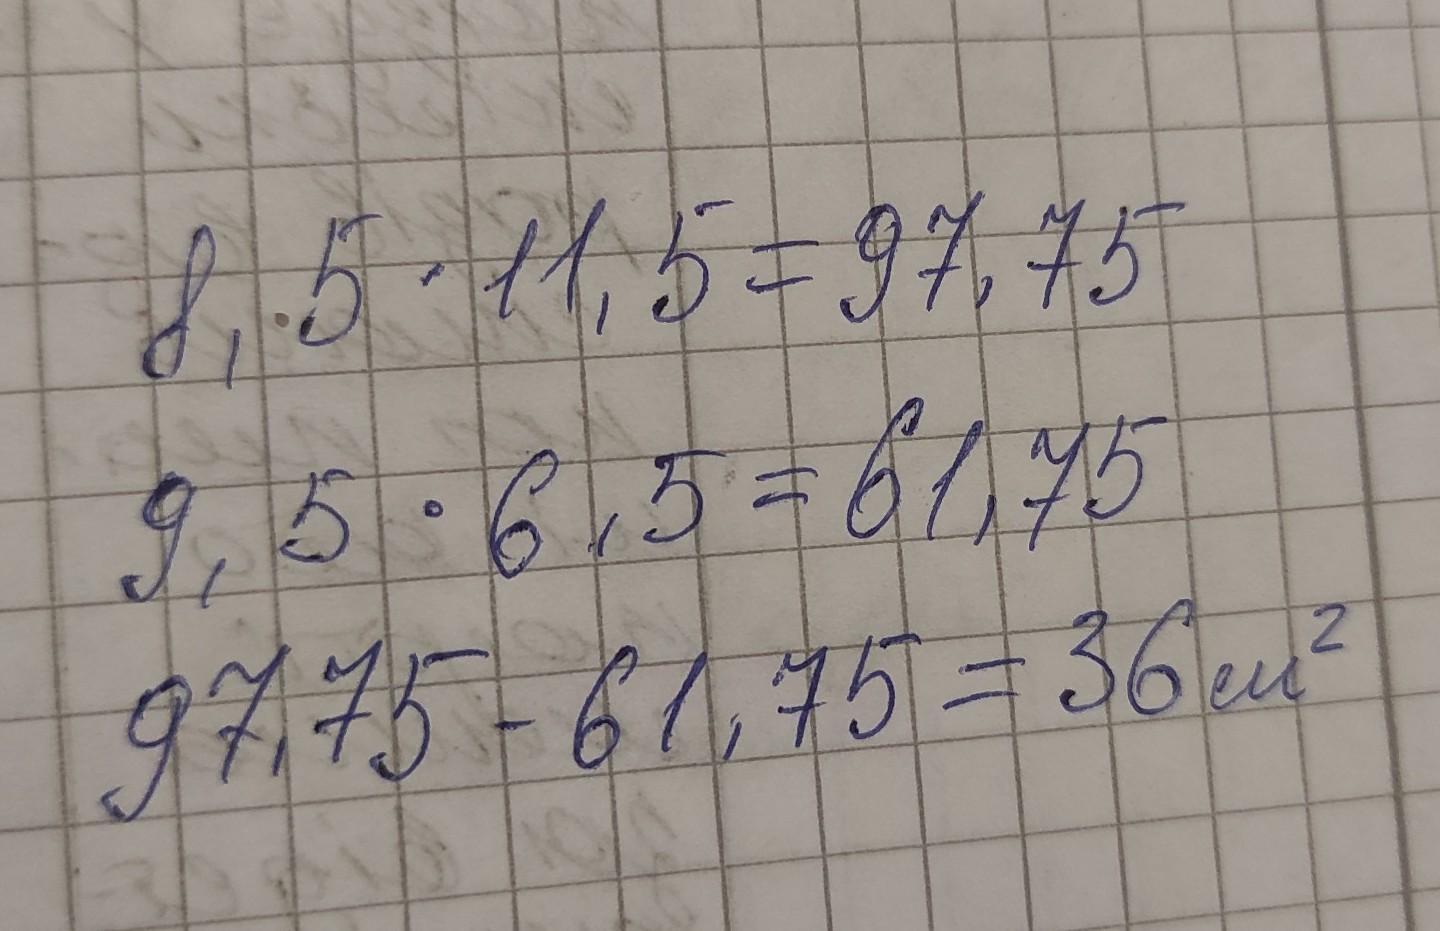 8,5·11,5=97,75
9,5·6,5=61,75
97,75-61,75=36см²